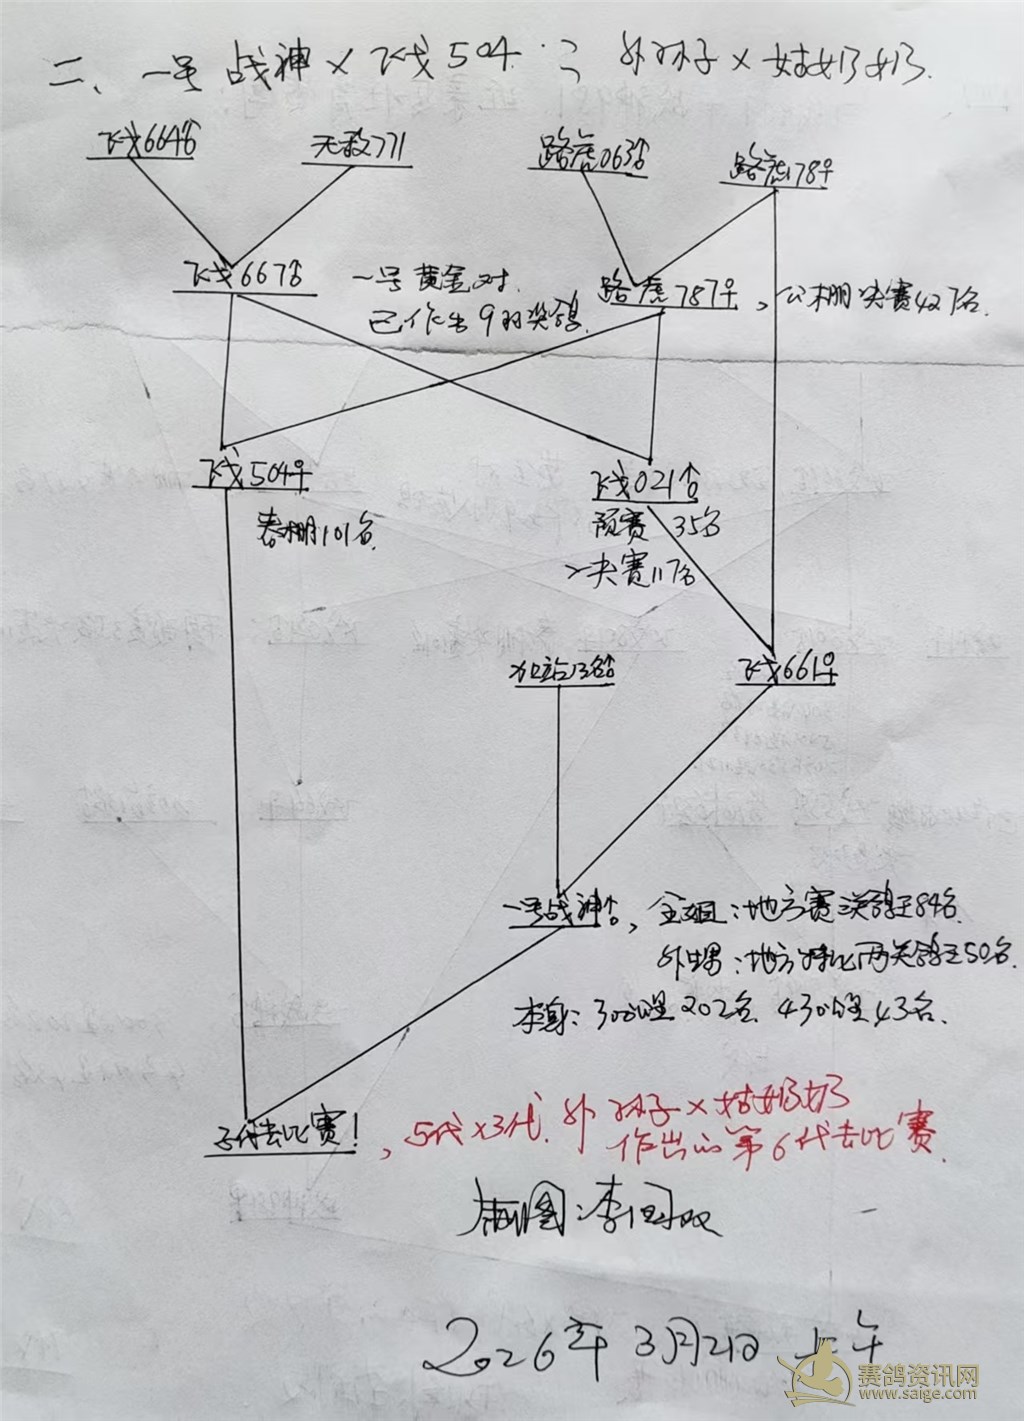 二、一号战神×飞戈504：外孙子×姑奶奶.
飞戈664♂ 无敌771 路虎063♂ 路虎178♀
飞戈667♂ 一号黄金对. 路虎787♀，公棚决赛427名.
已作出9羽奖鸽.
飞戈504♀ 飞戈021♂
春棚101名. 预赛35名
决赛117名
加站13名♂ 飞戈661♀
一号战神♂，全姐：地方赛三关鸽王84名.
外甥：地方特比两关鸽王50名.
本身：300公里202名. 430公里43名.
子代去比赛！，5代×3代. 外孙子×姑奶奶
作出的第6代去比赛.
制图：李国双
2026年3月2日上午
赛鸽资讯网
www.saige.com